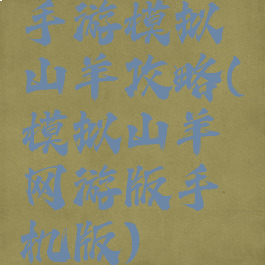 手游模拟
山羊攻略(
模拟山羊
网游版手
机版)